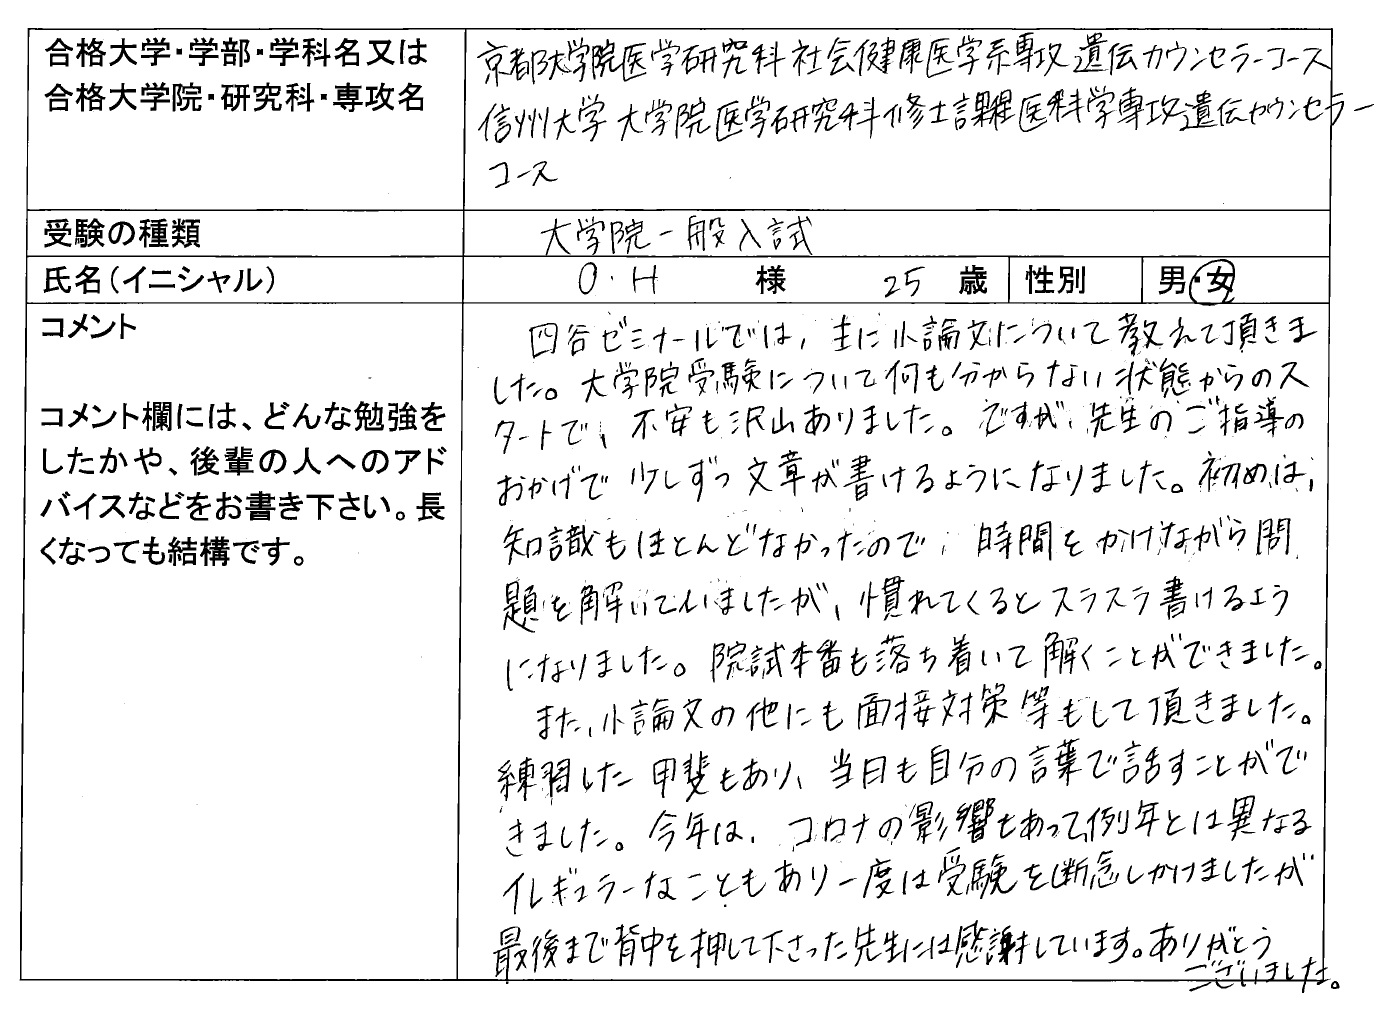 合格大学・学部・学科名又は
合格大学院・研究科・専攻名
京都大学院医学研究科社会健康医学系専攻遺伝カウンセラーコース
信州大学大学院医学研究科修士課程医科学専攻遺伝カウンセラー
コース
受験の種類
大学院一般入試
氏名(イニシャル)
O.H 様 25 歳 性別 男・女
コメント
コメント欄には、どんな勉強を
したかや、後輩の人へのアド
バイスなどをお書き下さい。長
くなっても結構です。
四谷ゼミナールでは、主に小論文について教えて頂きま
した。大学院受験について何も分からない状態からのス
タートで、不安も沢山ありました。ですが、先生のご指導の
おかげで少しずつ文章が書けるようになりました。初めは、
知識もほとんどなかったので、時間をかけながら問
題を解いていましたが、慣れてくるとスラスラ書けるよう
になりました。院試本番も落ち着いて解くことができました。
また、小論文の他にも面接対策等もして頂きました。
練習した甲斐もあり、当日も自分の言葉で話すことがで
きました。今年は、コロナの影響もあって例年とは異なる
イレギュラーなこともあり一度は受験を断念しかけましたが
最後まで背中を押して下さった先生には感謝しています。ありがとう
ございました。